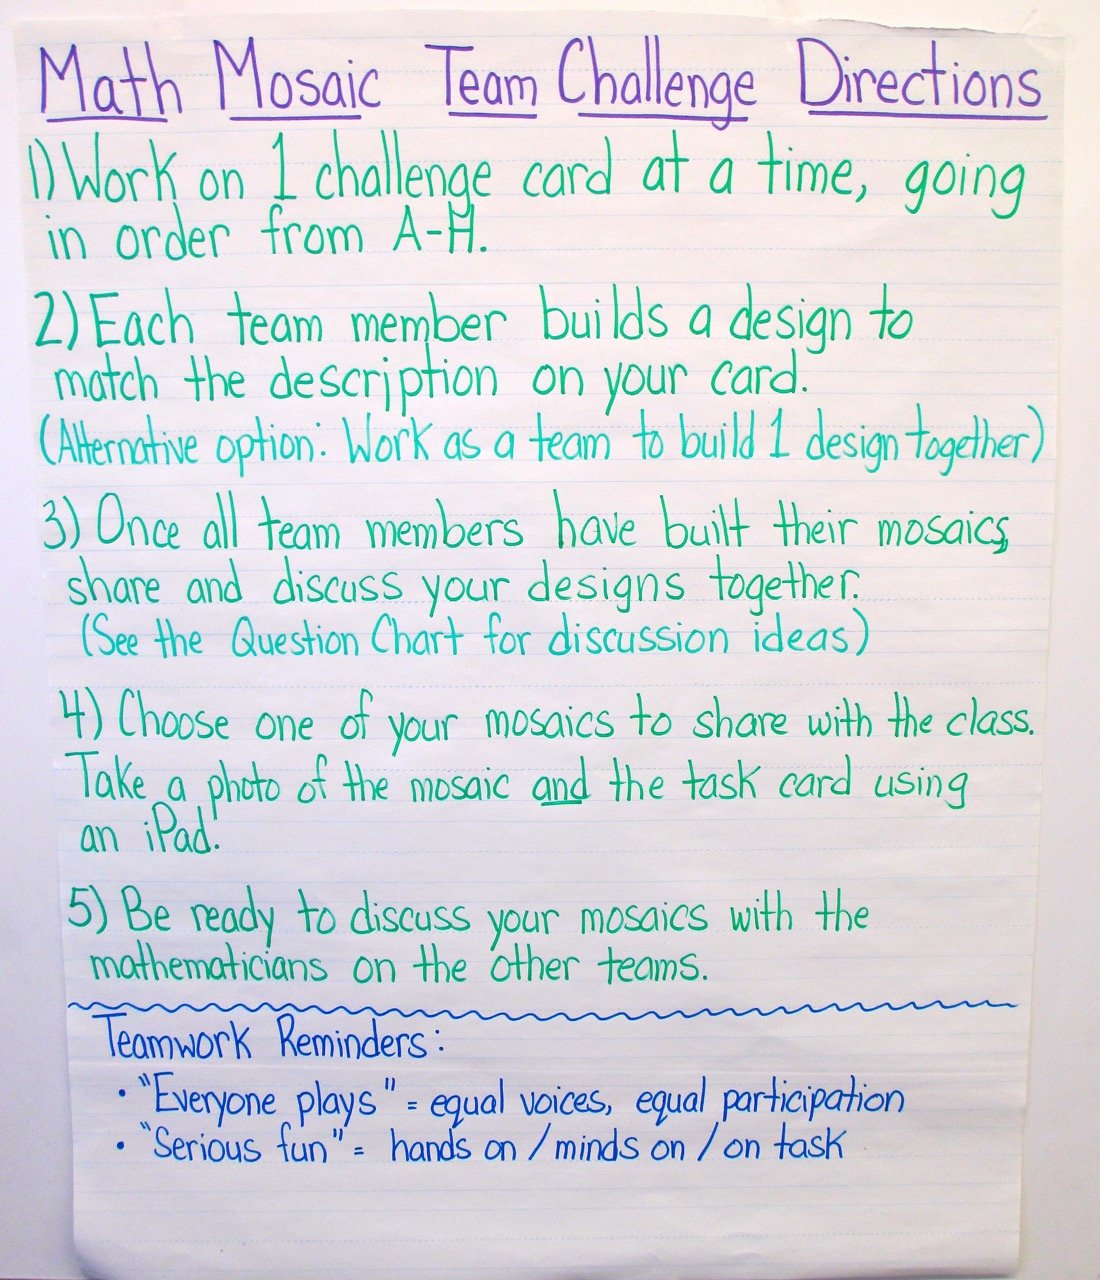 Math Mosaic Team Challenge Directions
1) Work on 1 challenge card at a time, going
in order from A-H.
2) Each team member builds a design to
match the description on your card.
(Alternative option: Work as a team to build 1 design together)
3) Once all team members have built their mosaics,
share and discuss your designs together.
(See the Question Chart for discussion ideas)
4) Choose one of your mosaics to share with the class.
Take a photo of the mosaic and the task card using
an iPad.
5) Be ready to discuss your mosaics with the
mathematicians on the other teams.
Teamwork Reminders:
• "Everyone plays" = equal voices, equal participation
• "Serious fun" = hands on / minds on / on task